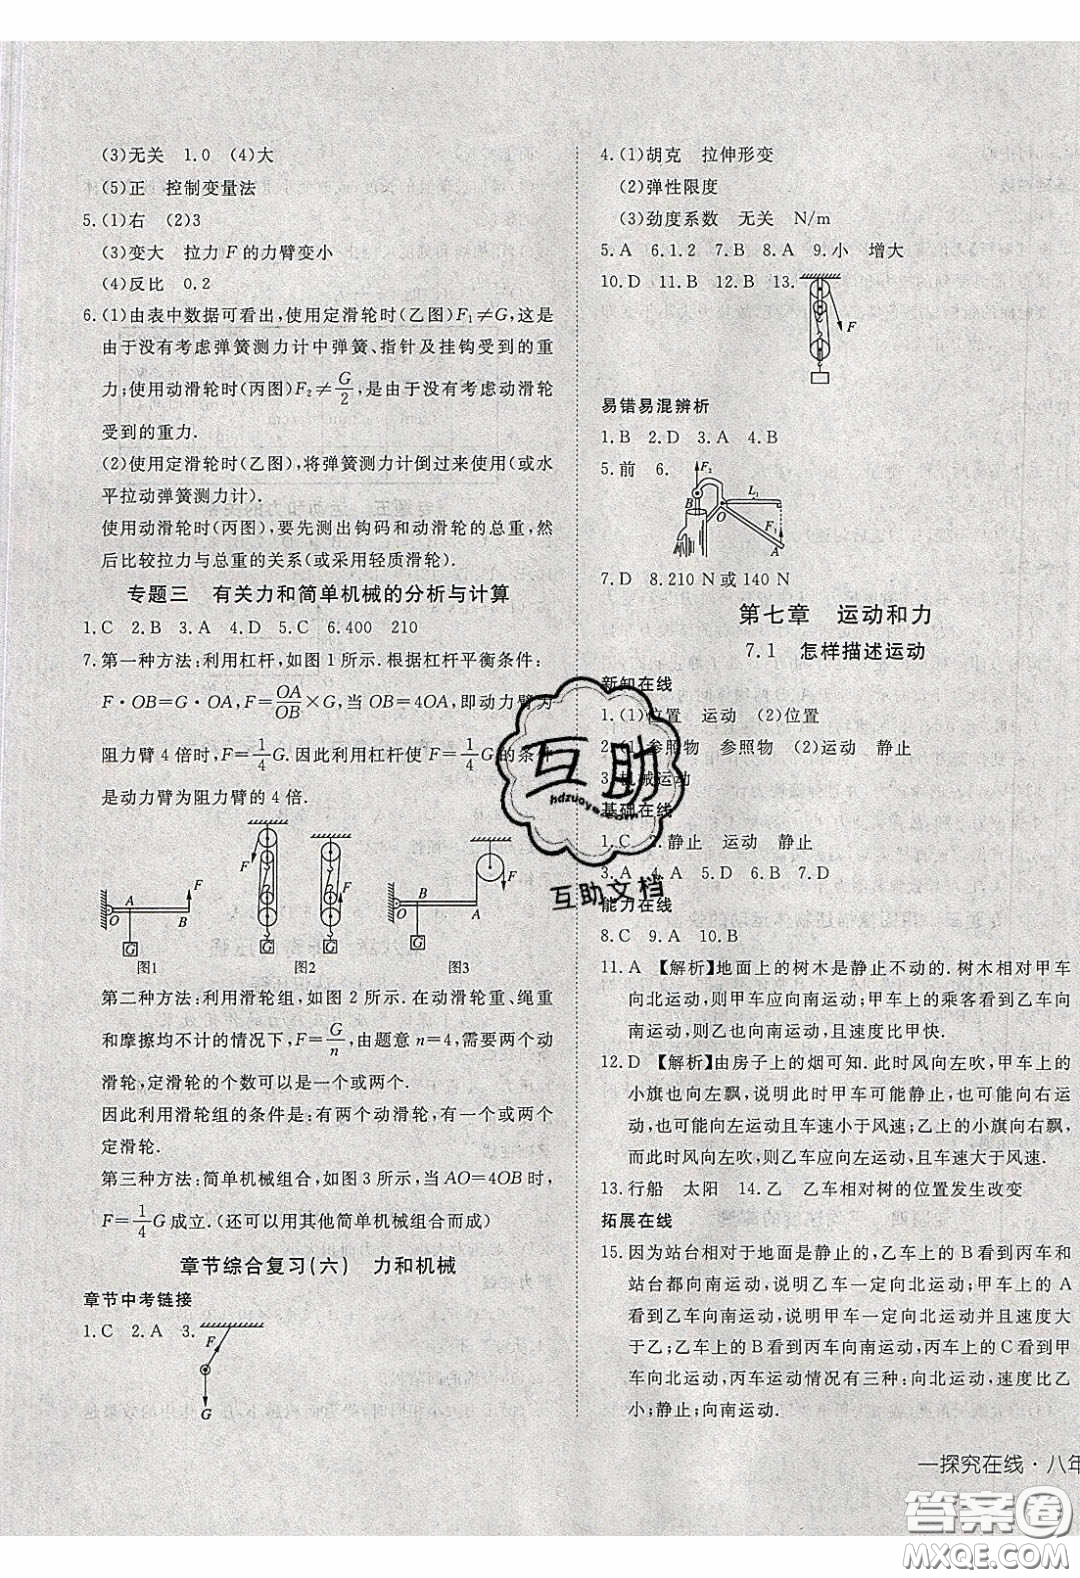 (3)无关 1.0 (4)大
(5)正 控制变量法
5.(1)右 (2)3
(3)变大 拉力 F 的力臂变小
(4)反比 0.2
6.(1)由表中数据可看出,使用定滑轮时(乙图)F₁≠G,这是
由于没有考虑弹簧测力计中弹簧、指针及挂钩受到的重
力;使用动滑轮时(丙图)F₂≠G/2,是由于没有考虑动滑轮
受到的重力.
(2)使用定滑轮时(乙图),将弹簧测力计倒过来使用(或水
平拉动弹簧测力计).
使用动滑轮时(丙图),要先测出钩码和动滑轮的总重,然
后比较拉力与总重的关系(或采用轻质滑轮).
专题三 有关力和简单机械的分析与计算
1.C 2.B 3.A 4.D 5.C 6.400 210
7.第一种方法:利用杠杆,如图 1 所示.根据杠杆平衡条件:
F·OB=G·OA,F=OA/OB×G,当 OB=4OA,即动力臂为
阻力臂 4 倍时,F=1/4G.因此利用杠杆使 F=1/4G 的条件
是动力臂为阻力臂的 4 倍.
O A B F G
图1
F G
图2
F
O B A F G
图3
第二种方法:利用滑轮组,如图 2 所示.在动滑轮重、绳重
和摩擦均不计的情况下,F=G/n,由题意 n=4,即两个动
滑轮,定滑轮的个数可以是一或二.
因此利用滑轮组的条件是:有两个动滑轮,有一个或两个
定滑轮.
第三种方法:简单机械组合,如图 3 所示,当 AO=4OB 时,
F=1/4G 成立.(还可以用其他简单机械组合而成)
章节综合复习(六) 力和机械
章节中考链接
1.C 2.A 3.
F
G
4.(1)胡克 拉伸形变
(2)弹性限度
(3)劲度系数 无关 N/m
5.A 6.1.2 7.B 8.A 9.小 增大
10.D 11.B 12.B 13.
F
易错易混辨析
1.B 2.D 3.A 4.B
5.前 6.
F₂ L₁ O F₁ A
7.D 8.210 N 或 140 N
第七章 运动和力
7.1 怎样描述运动
新知在线
1.(1)位置 运动 (2)位置
2.(1)参照物 参照物 (2)运动 静止
3.机械运动
基础在线
1.C 2.静止 运动 静止
3.A 4.A 5.D 6.B 7.D
能力在线
8.C 9.A 10.B
11.A 【解析】地面上的树木是静止不动的.树木相对甲车
向北运动,则甲车应向南运动;甲车上的乘客看到乙车向
南运动,则乙也向南运动,且速度比甲快.
12.D 【解析】由房子上的烟可知.此时风向左吹,甲车上的
小旗也向左飘,说明此时甲车可能静止,也可能向右运
动,可能向左运动且车速小于风速;乙上的小旗向右飘,
而风向左吹,所以,乙车应向左运动,且车速大于风速.
13.行船 太阳 14.乙 乙车相对树的位置发生改变
拓展在线
15.因为站台相对于地面是静止的,乙车上的 B 看到丙车和
站台都向南运动,说明乙车一定向北运动;甲车上的 A
看到乙车向南运动,则甲车一定向北运动并且速度大
于乙;乙车上的 B 看到丙车向南运动,丙车上的 C 看到甲
车向北运动,丙车运动情况有三种:向北,速度比乙
小;静止;向南运动.
一探究在线·八年
互助
hdzuoye.com
互助文档
答案圈
MXQE.COM